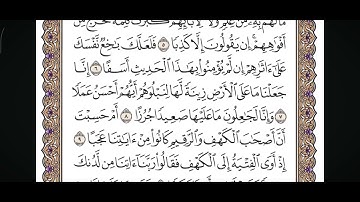 مَّا لَهُم بِهِۦ مِنْ عِلْمٍ وَلَا لِـَٔابَآئِهِمْ كَبُرَتْ كَلِمَةً تَخْرُجُ مِنْ
أَفْوَٰهِهِمْ إِن يَقُولُونَ إِلَّا كَذِبًا ٥ فَلَعَلَّكَ بَٰخِعٌ نَّفْسَكَ
عَلَىٰٓ ءَاثَٰرِهِمْ إِن لَّمْ يُؤْمِنُوا۟ بِهَٰذَا ٱلْحَدِيثِ أَسَفًا ٦ إِنَّا
جَعَلْنَا مَا عَلَى ٱلْأَرْضِ زِينَةً لَّهَا لِنَبْلُوَهُمْ أَيُّهُمْ أَحْسَنُ عَمَلًا
٧ وَإِنَّا لَجَٰعِلُونَ مَا عَلَيْهَا صَعِيدًا جُرُزًا ٨ أَمْ حَسِبْتَ
أَنَّ أَصْحَٰبَ ٱلْكَهْفِ وَٱلرَّقِيمِ كَانُوا۟ مِنْ ءَايَٰتِنَا عَجَبًا ٩
إِذْ أَوَى ٱلْفِتْيَةُ إِلَى ٱلْكَهْفِ فَقَالُوا۟ رَبَّنَآ ءَاتِنَا مِن لَّدُنكَ